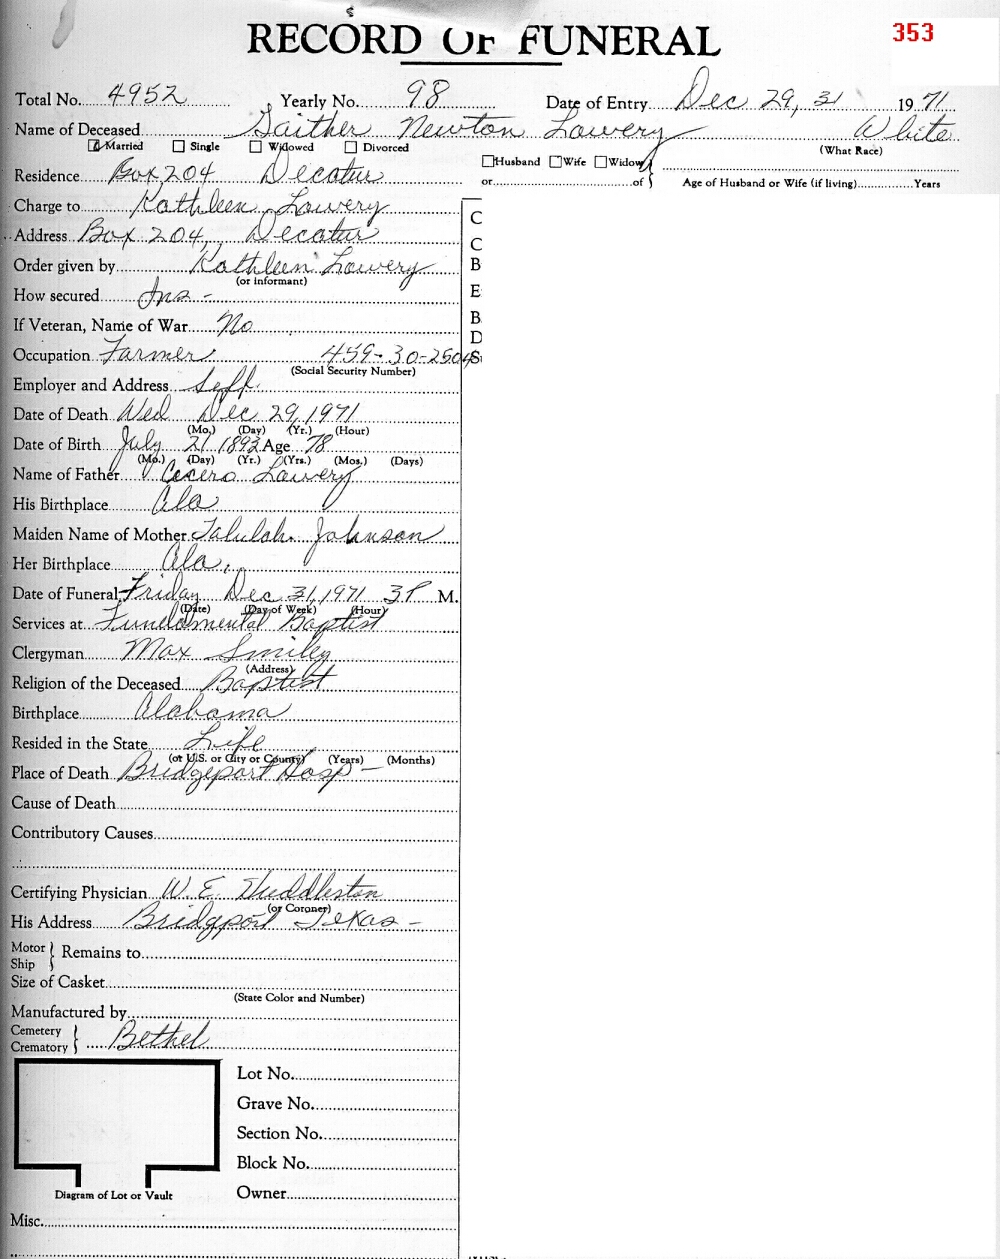 RECORD OF FUNERAL
353
Total No. 4952 Yearly No. 98 Date of Entry Dec 29, 31 1971
Name of Deceased Gaither Newton Lowery White
Married Single Widowed Divorced (What Race)
Husband Wife Widow
Residence Box 204 Decatur
or of Age of Husband or Wife (if living) Years
Charge to Kathleen Lowery
C
Address Box 204, Decatur
C
Order given by Kathleen Lowery
B
(or informant)
How secured Ins -
E
If Veteran, Name of War No
B
D
Occupation Farmer 459-30-2504 S
(Social Security Number)
Employer and Address Self
Date of Death Wed Dec 29, 1971
(Mo.) (Day) (Yr.) (Hour)
Date of Birth July 21 1893 Age 78
(Mo.) (Day) (Yr.) (Yrs.) (Mos.) (Days)
Name of Father Cicero Lowery
His Birthplace Ala
Maiden Name of Mother Talulah Johnson
Her Birthplace Ala.
Date of Funeral Friday Dec 31, 1971 3 P M.
(Date) (Day of Week) (Hour)
Services at Fundamental Baptist
Clergyman Max Smiley
(Address)
Religion of the Deceased Baptist
Birthplace Alabama
Resided in the State Life
(or U.S. or City or County) (Years) (Months)
Place of Death Bridgeport Hosp -
Cause of Death
Contributory Causes
Certifying Physician W. E. Huddleston
(or Coroner)
His Address Bridgeport Texas -
Motor Ship Remains to
Size of Casket
(State Color and Number)
Manufactured by
Cemetery Crematory Bethel
Lot No.
Grave No.
Section No.
Block No.
Diagram of Lot or Vault
Owner
Misc.